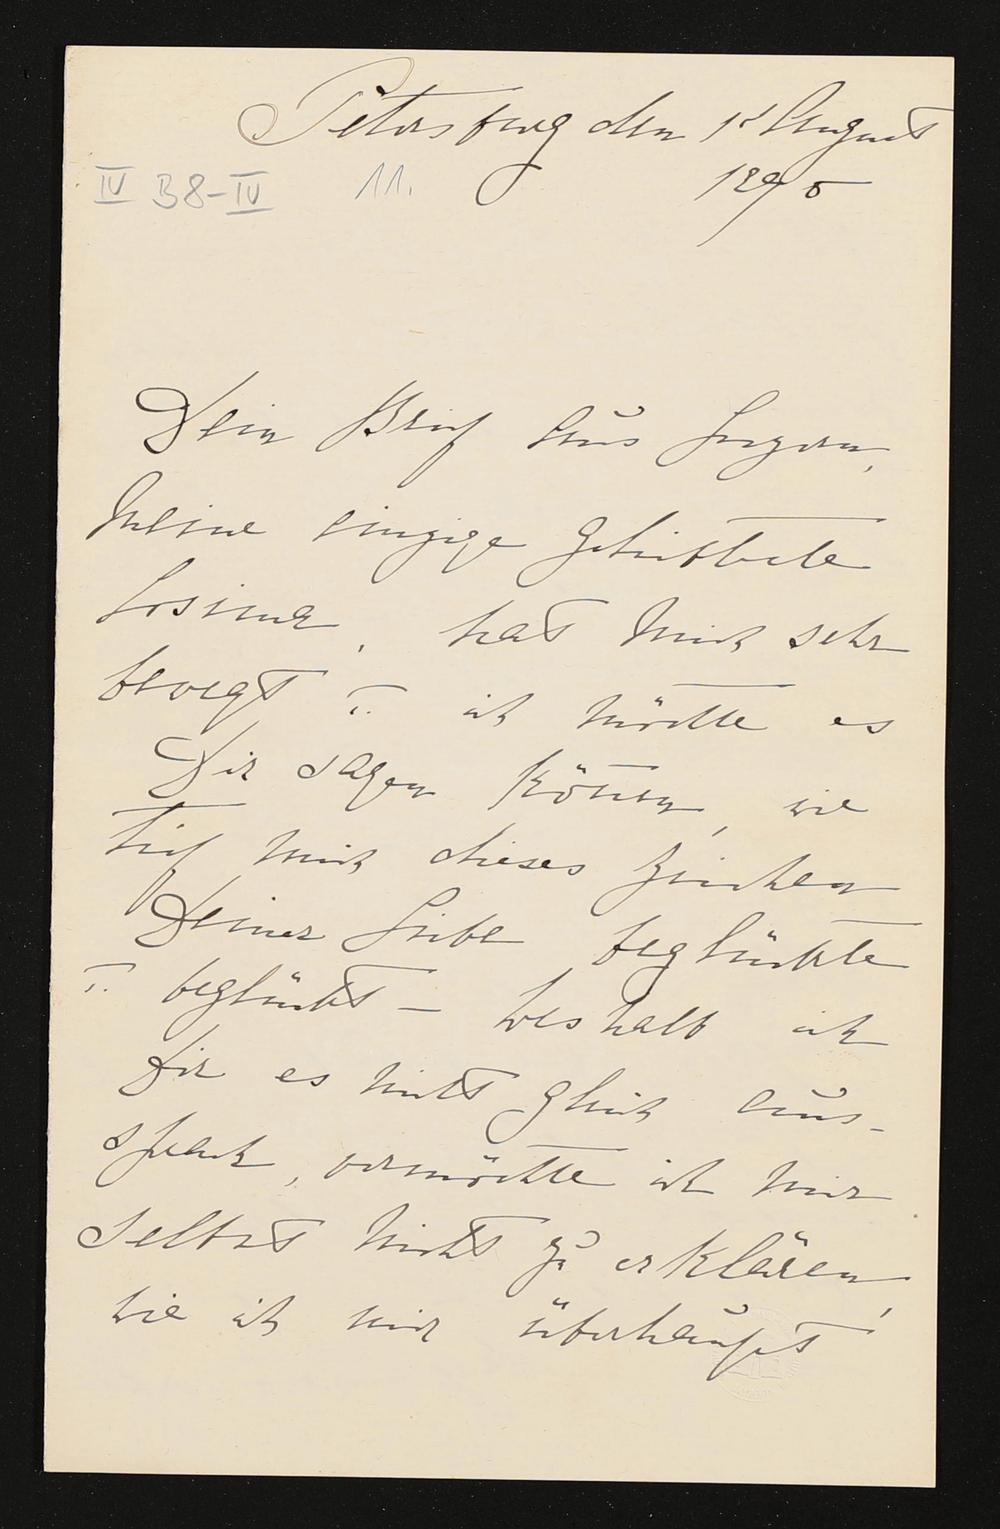 Petersburg den 1t August
1895
IV B8-IV 11.
Dein Brief aus Luzern,
meine einzige geliebteste
Cosima, hat mich sehr
bewegt u. ich möchte es
Dir sagen können, wie
tief mich dieses Zeichen
Deiner Liebe beglückte
u. beglückt – weshalb ich
Dir es nicht gleich aus-
sprach, vermöchte ich mir
selbst nicht zu erklären,
wie ich mir überhaupt